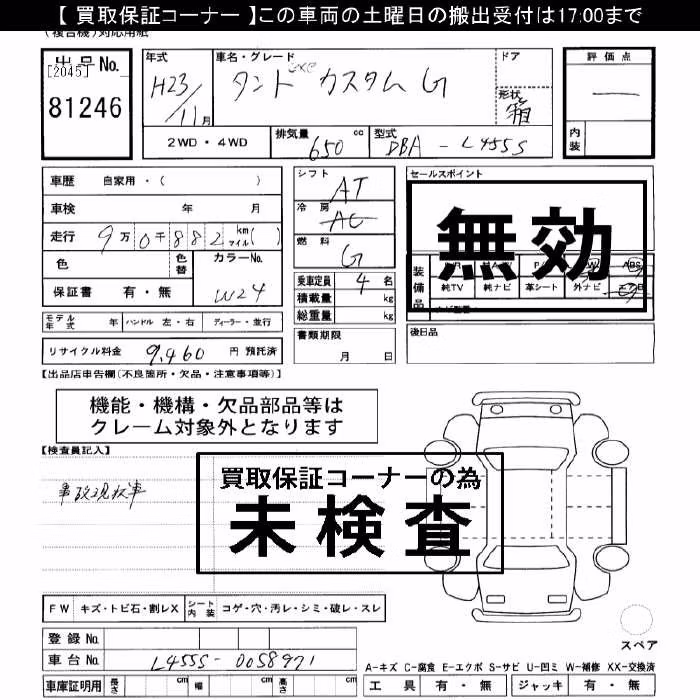 【 買取保証コーナー 】この車両の土曜日の搬出受付は17:00まで
(複合機)対応用紙
出品No.
[2045]
81246
年式
H23/11月
車名・グレード
タント exe カスタム G
ドア
形状
箱
評価点
—
内装
2WD・4WD
排気量 650 cc
型式 DBA - L455S
車歴 自家用・( )
車検 年 月
走行 9万0千882 km マイル( )
色 色替 カラーNo. W24
保証書 有・無
モデル年式 年 ハンドル 左・右 ディーラー・並行
リサイクル料金 9,460 円 預託済
シフト AT
冷房 AC
燃料 G
乗車定員 4 名
積載量 kg
総重量 kg
書類期限
月 日
セールスポイント
無効
装備品
ABS
純TV 純ナビ 革シート 外ナビ
後日品
【出品店申告欄(不良箇所・欠品・注意事項等)】
機能・機構・欠品部品等は
クレーム対象外となります
【検査員記入】
事故現状車
買取保証コーナーの為
未検査
FW キズ・トビ石・割レX シート内装 コゲ・穴・汚レ・シミ・破レ・スレ
登録No.
車台No. L455S-0058971
車庫証明用 長さ cm 幅 cm 高さ cm
スペア
A-キズ C-腐食 E-エクボ S-サビ U-凹ミ W-補修 XX-交換済
工具 有・無 ジャッキ 有・無